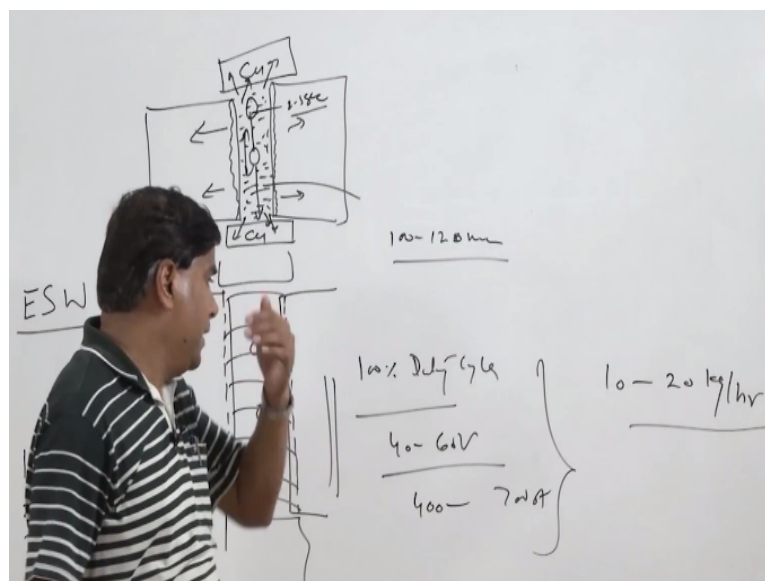 Cu
Cu
100-120mm
ESW
100% Duty Cycle
40-60V
400-700A
10-20 kg/hr